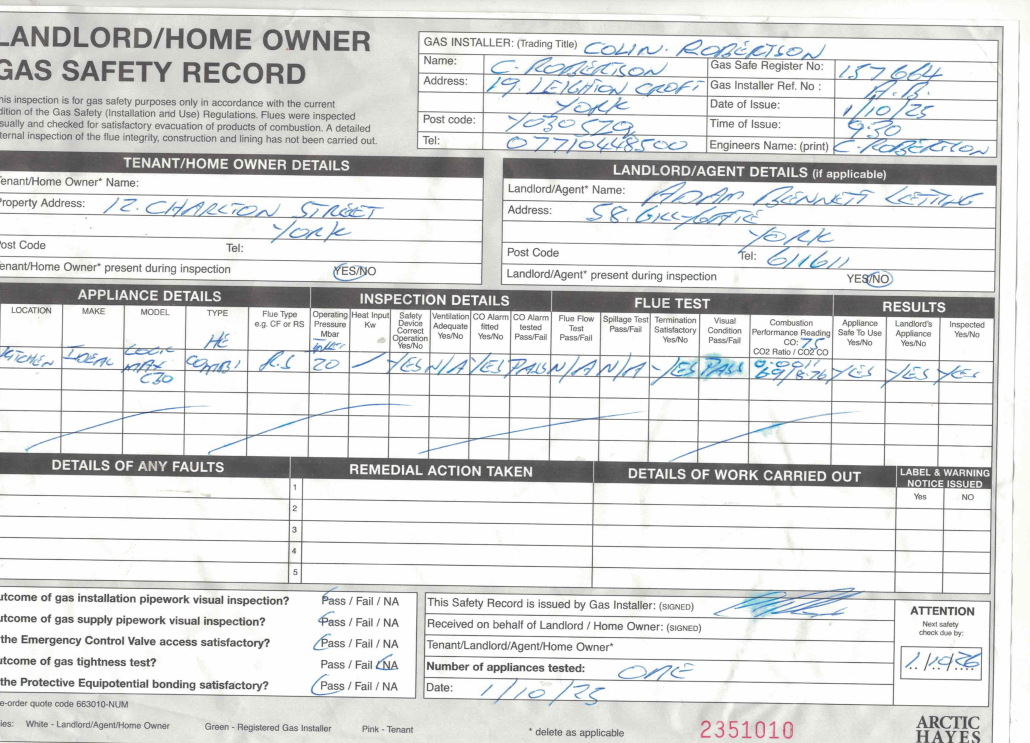 LANDLORD/HOME OWNER
GAS SAFETY RECORD
his inspection is for gas safety purposes only in accordance with the current
dition of the Gas Safety (Installation and Use) Regulations. Flues were inspected
sually and checked for satisfactory evacuation of products of combustion. A detailed
ternal inspection of the flue integrity, construction and lining has not been carried out.
GAS INSTALLER: (Trading Title) COLIN. ROBERTSON
Name: C. ROBERTSON Gas Safe Register No: 157664
Address: 19. LEIGHTON CROFT Gas Installer Ref. No : A.B.
YORK Date of Issue: 1/10/25
Post code: YO30 5ZQ Time of Issue: 9:30
Tel: 07710448500 Engineers Name: (print) C. ROBERTSON
TENANT/HOME OWNER DETAILS
Tenant/Home Owner* Name:
Property Address: 12. CHARLTON STREET
YORK
ost Code Tel:
enant/Home Owner* present during inspection YES/NO
LANDLORD/AGENT DETAILS (if applicable)
Landlord/Agent* Name: ADAM BENNETT LETTING
Address: 58. GILLYGATE
YORK
Post Code Tel: 611611
Landlord/Agent* present during inspection YES/NO
APPLIANCE DETAILS INSPECTION DETAILS FLUE TEST RESULTS
LOCATION MAKE MODEL TYPE Flue Type e.g. CF or RS Operating Pressure Mbar Heat Input Kw Safety Device Correct Operation Yes/No Ventilation Adequate Yes/No CO Alarm fitted Yes/No CO Alarm tested Pass/Fail Flue Flow Test Pass/Fail Spillage Test Pass/Fail Termination Satisfactory Yes/No Visual Condition Pass/Fail Combustion Performance Reading CO: 75 CO2 Ratio / CO2 CO Appliance Safe To Use Yes/No Landlord's Appliance Yes/No Inspected Yes/No
KITCHEN IDEAL LOGIC MAX C30 HE COMBI R.S INLET 20 YES N/A YES PASS N/A N/A YES PASS 69/8.76 YES YES YES
DETAILS OF ANY FAULTS REMEDIAL ACTION TAKEN DETAILS OF WORK CARRIED OUT LABEL & WARNING NOTICE ISSUED
Yes NO
1
2
3
4
5
utcome of gas installation pipework visual inspection? Pass / Fail / NA
utcome of gas supply pipework visual inspection? Pass / Fail / NA
the Emergency Control Valve access satisfactory? Pass / Fail / NA
utcome of gas tightness test? Pass / Fail / NA
the Protective Equipotential bonding satisfactory? Pass / Fail / NA
This Safety Record is issued by Gas Installer: (SIGNED)
Received on behalf of Landlord / Home Owner: (SIGNED)
Tenant/Landlord/Agent/Home Owner*
Number of appliances tested: ONE
Date: 1/10/25
ATTENTION
Next safety
check due by:
1/10/26
e-order quote code 663010-NUM
ies: White - Landlord/Agent/Home Owner Green - Registered Gas Installer Pink - Tenant
* delete as applicable
2351010
ARCTIC
HAYES